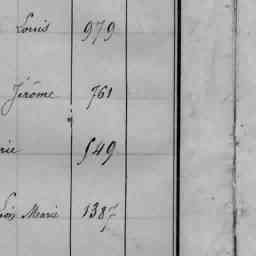 Louis 979
Jérôme 761
rie 549
çois Marie 1387